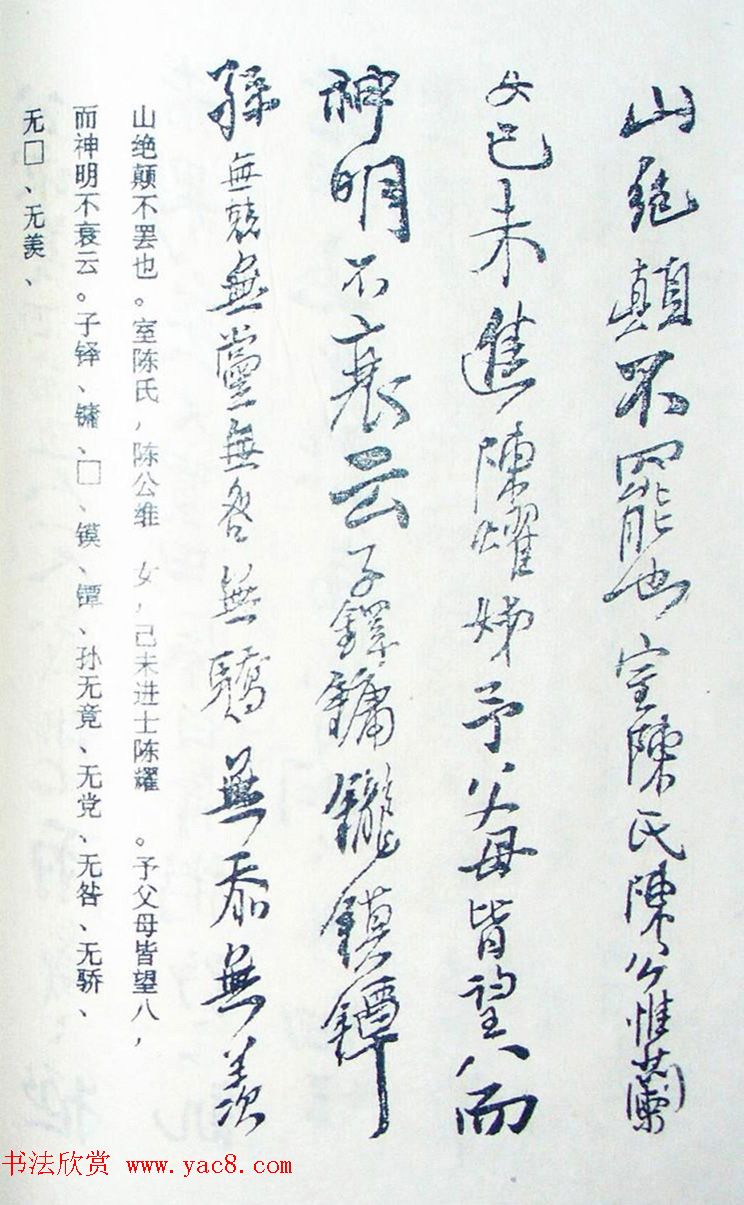 山絶顛不罷也室陳氏陳公惟蘭
女已未進陳燿姊予父母皆望八而
神明不衰云子鐸鏞鑨鏌鐔
孫無競無黨無咎無驕無忝無羨
山绝颠不罢也。室陈氏，陈公维 女，己未进士陈耀 。予父母皆望八，
而神明不衰云。子铎、镛、□、镆、镡、孙无竟、无党、无咎、无骄、
无□、无羡、
书法欣赏 www.yac8.com